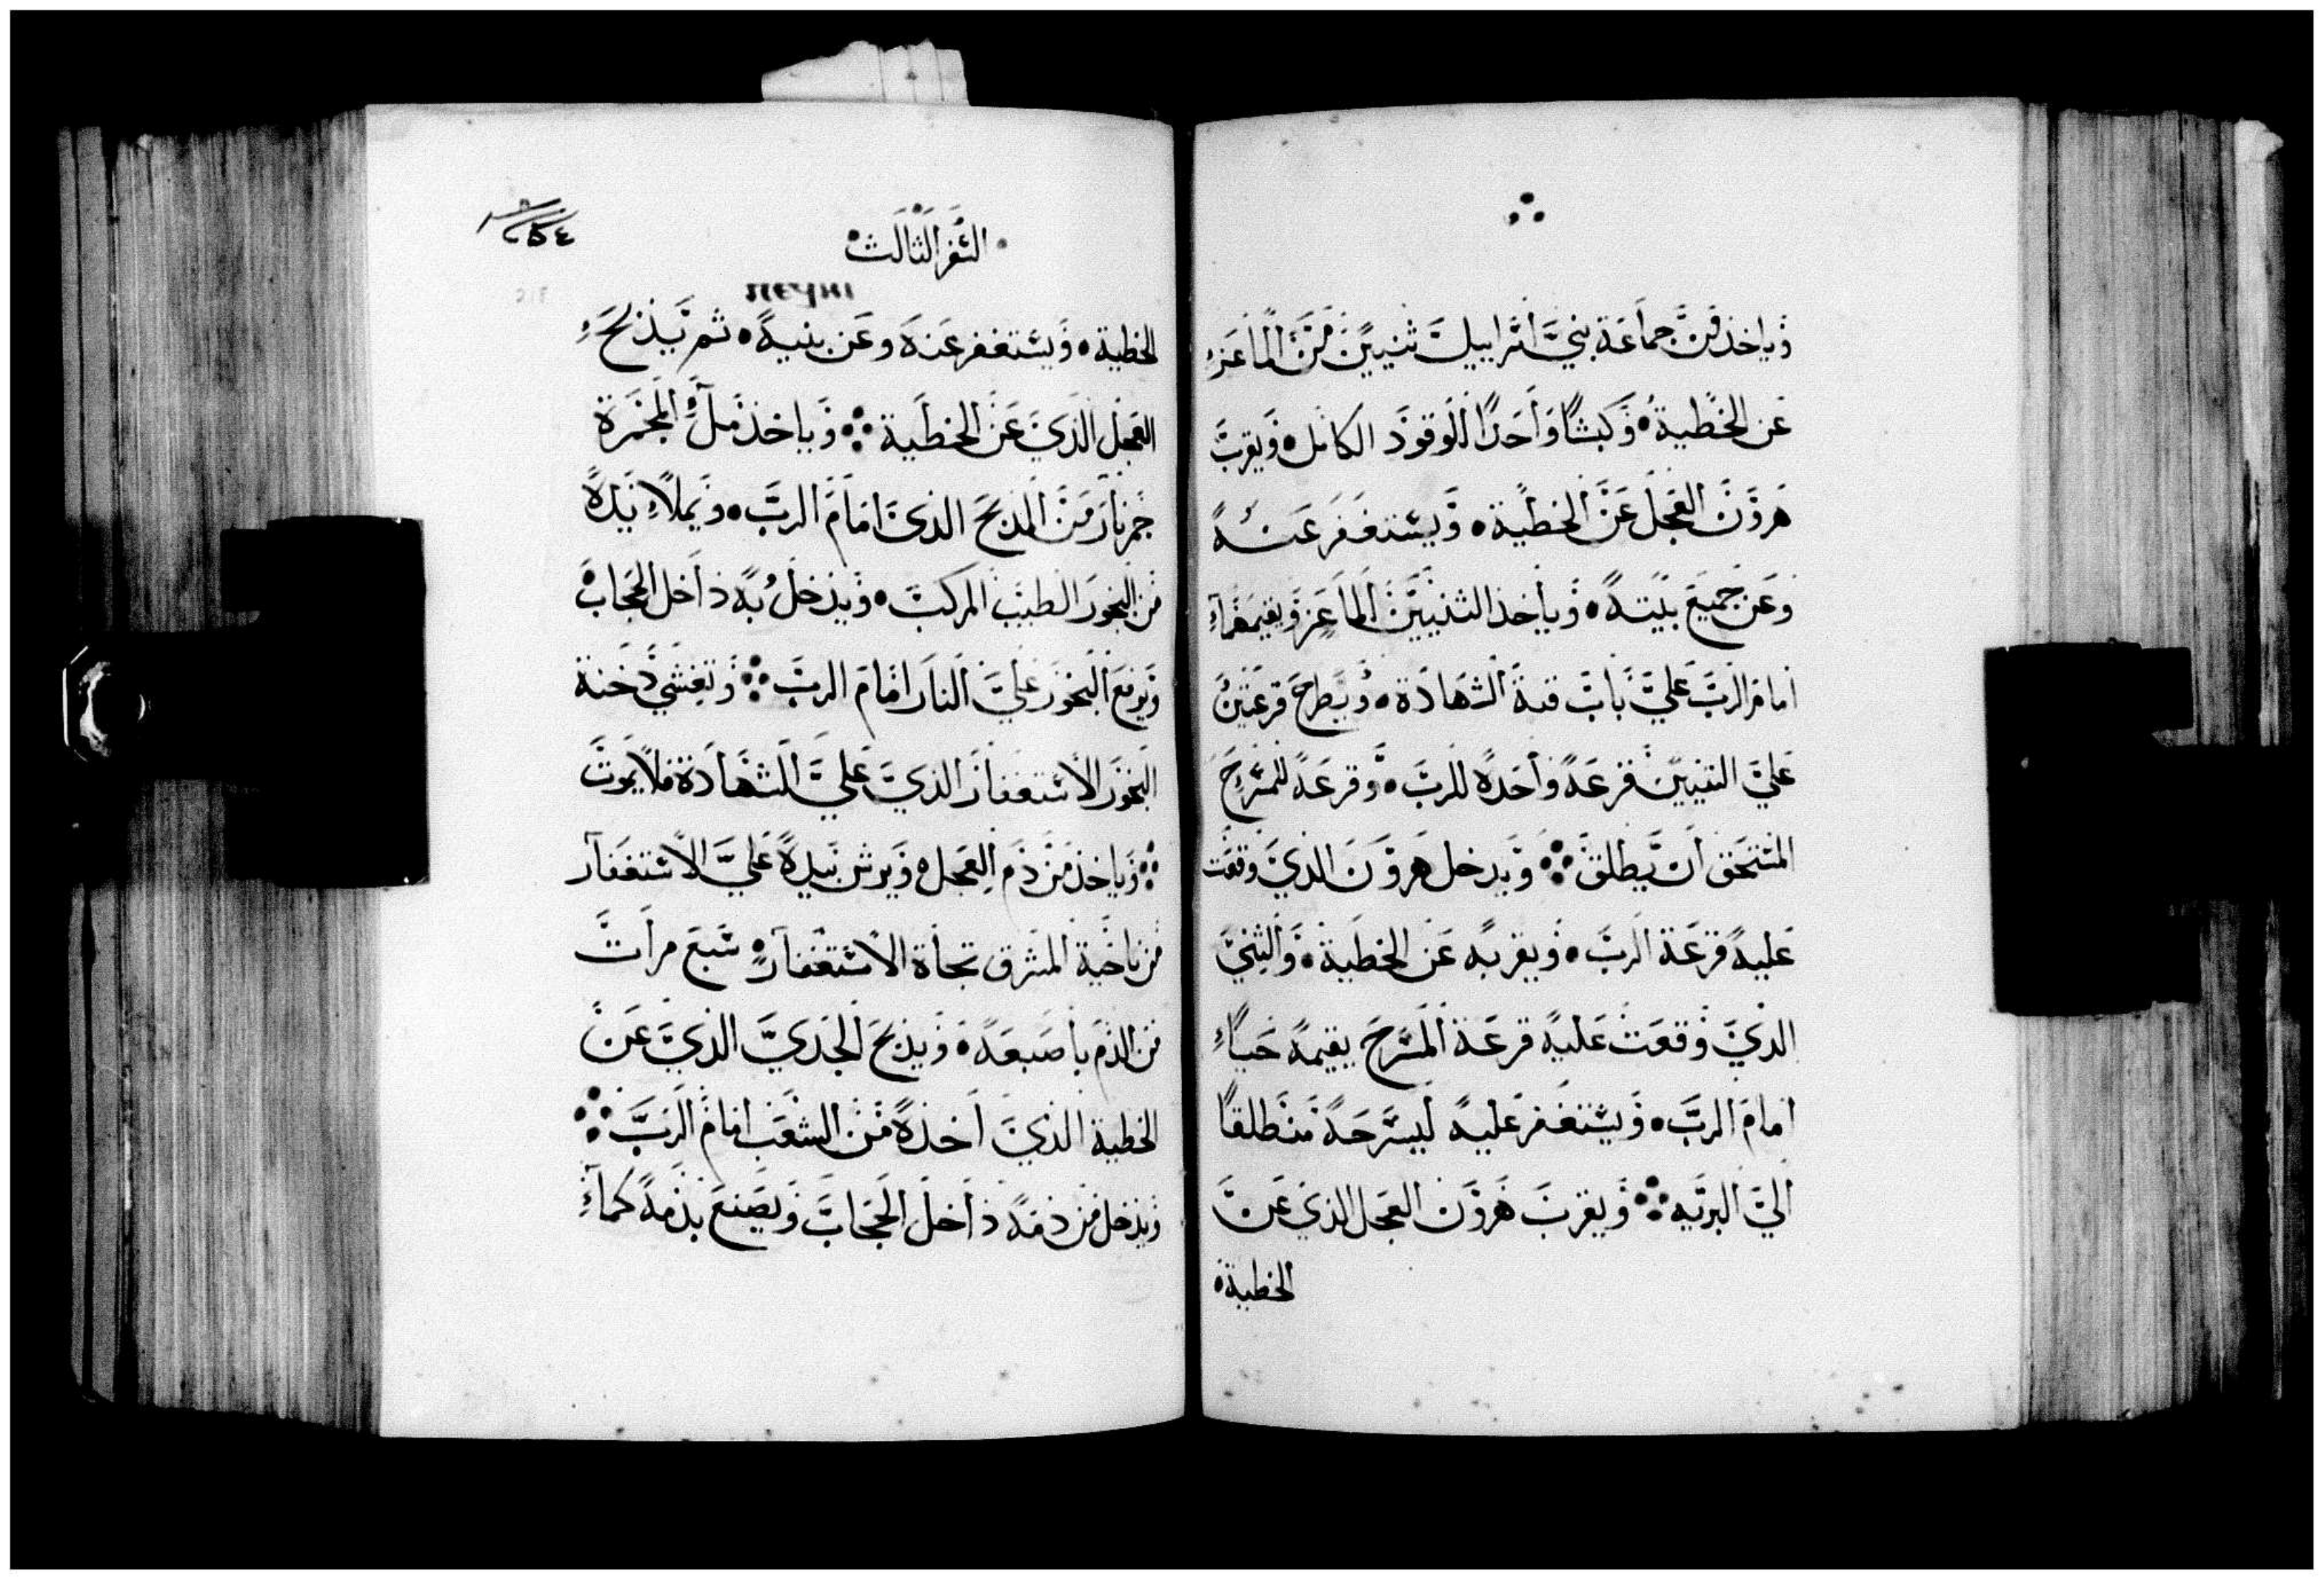 وياخذ من جماعة بني اسراييل ثنيين من الماعز
عن الخطية وكبشا واحدا للوقود الكامل ويقرب
هرون العجل عن الخطية ويستغفر عنه
وعن جميع بيته وياخذ الثنيين الماعز ويقيمهما
امام الرب علي باب قبة الشهادة ويطرح قرعتين
علي الثنيين قرعة واحدة للرب وقرعة للمسرح
المستحق ان يطلق ويدخل هرون الذي وقعت
عليه قرعة الرب ويقربه عن الخطية والثني
الذي وقعت عليه قرعة المسرح يقيمه حيا
امام الرب ويستغفر عليه ليسرحه منطلقا
الي البريه ويقرب هرون العجل الذي عن
الخطية
السفر الثالث
٢٥٤
الخطية ويستغفر عنه وعن بنيه ثم يذبح
العجل الذي عن الخطية وياخذ ملء المجمرة
جمر نار من المذبح الذي امام الرب ويملا يده
من البخور الطيب المركب ويدخل به داخل الحجاب
ويرفع البخور علي النار امام الرب وتغشي دخنة
البخور الاستغفار الذي علي الشهادة فلا يموت
وياخذ من دم العجل ويرش بيده علي الاستغفار
من ناحية المشرق تجاة الاستغفار سبع مرات
من الدم باصبعه ويذبح الجدي الذي عن
الخطية الذي اخذه من الشعب امام الرب
ويدخل من دمه داخل الحجاب ويصنع بدمه كما